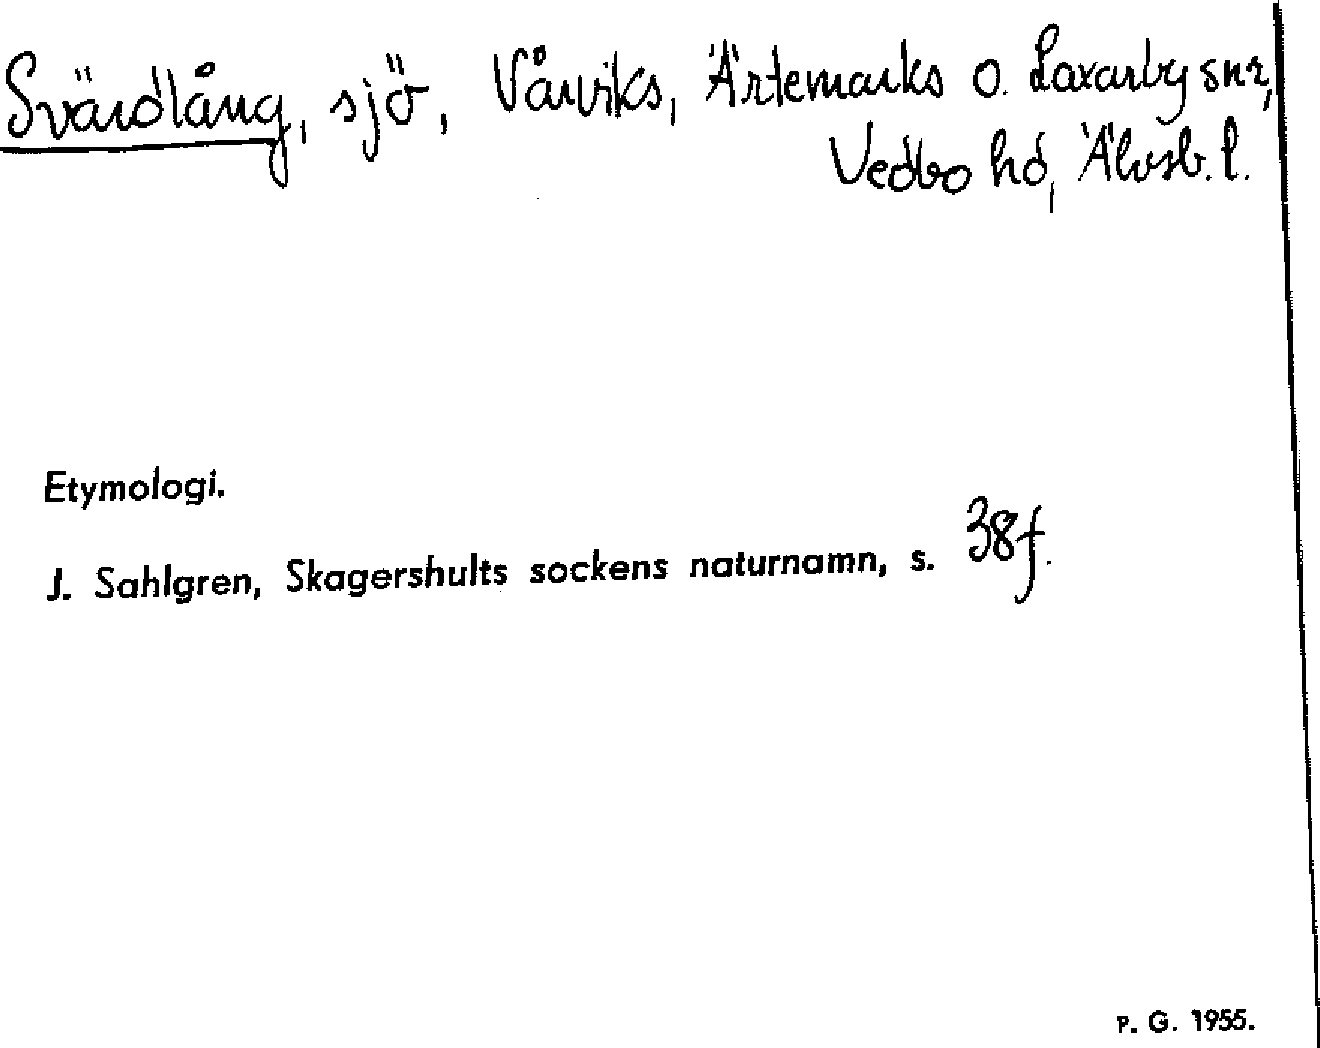 Svärdlång, sjö, Vårviks, Ärtemarks o. Laxarby snr,
Vedbo hd, Älvsb. l.
Etymologi.
J. Sahlgren, Skagershults sockens naturnamn, s. 38 f.
P. G. 1955.